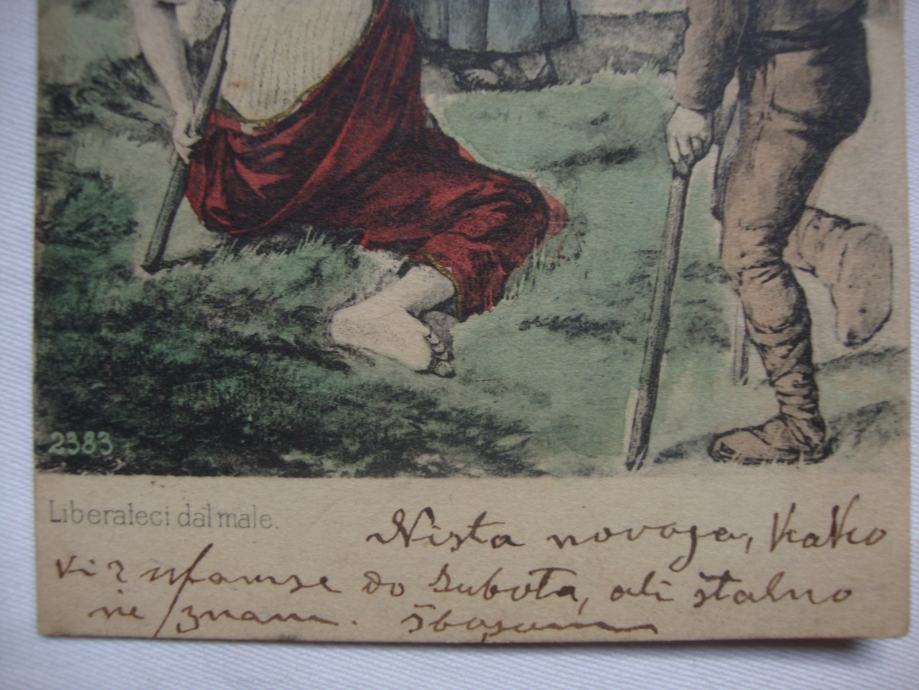 2383
Liberateci dal male.
Ništa novoga, kako
vi? ufamse do Subota, ali štalno
ne znam. Sbogom